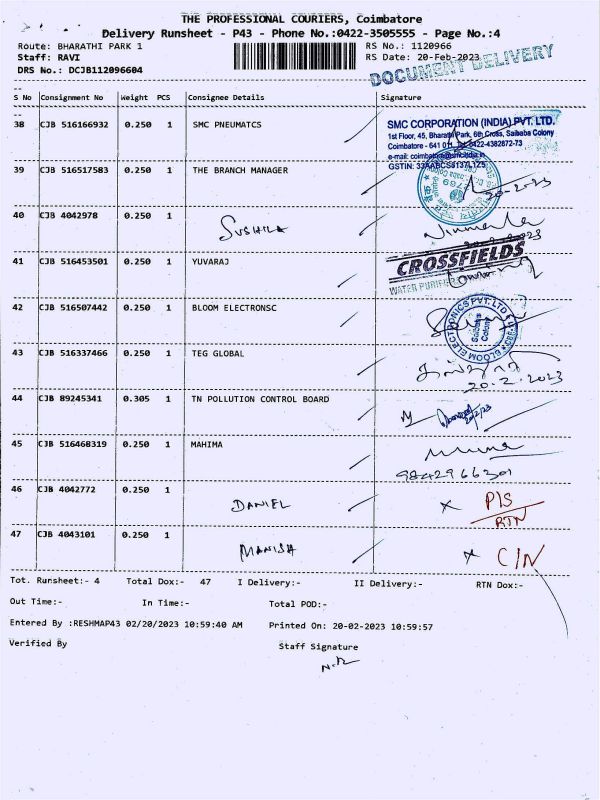 THE PROFESSIONAL COURIERS, Coimbatore
Delivery Runsheet - P43 - Phone No.:0422-3505555 - Page No.:4
Route: BHARATHI PARK 1
RS No.: 1120966
Staff: RAVI
RS Date: 20-Feb-2023
DRS No.: DCJB112096604
DOCUMENT DELIVERY
S No Consignment No Weight PCS Consignee Details Signature
38 CJB 516166932 0.250 1 SMC PNEUMATCS
SMC CORPORATION (INDIA) PVT. LTD.
1st Floor, 45, Bharathi Park, 6th Cross, Saibaba Colony
Coimbatore - 641 011. Tel: 0422-4382872-73
e-mail:
GSTIN:
39 CJB 516517583 0.250 1 THE BRANCH MANAGER
20-2-23
40 CJB 4042978 0.250 1 SUSHILA
41 CJB 516453501 0.250 1 YUVARAJ
CROSSFIELDS
WATER PURIFIER
42 CJB 516507442 0.250 1 BLOOM ELECTRONSC
BLOOM ELECTRONICS PVT. LTD
Saibaba
Colony
43 CJB 516337466 0.250 1 TEG GLOBAL
20-2-2023
44 CJB 89245341 0.305 1 TN POLLUTION CONTROL BOARD
45 CJB 516468319 0.250 1 MAHIMA
9842966301
46 CJB 4042772 0.250 1 DANIEL
x P/S
RTN
47 CJB 4043101 0.250 1 MANISH
x C/N
Tot. Runsheet:- 4 Total Dox:- 47 I Delivery:- II Delivery:- RTN Dox:-
Out Time:- In Time:- Total POD:-
Entered By :RESHMAP43 02/20/2023 10:59:40 AM Printed On: 20-02-2023 10:59:57
Verified By Staff Signature